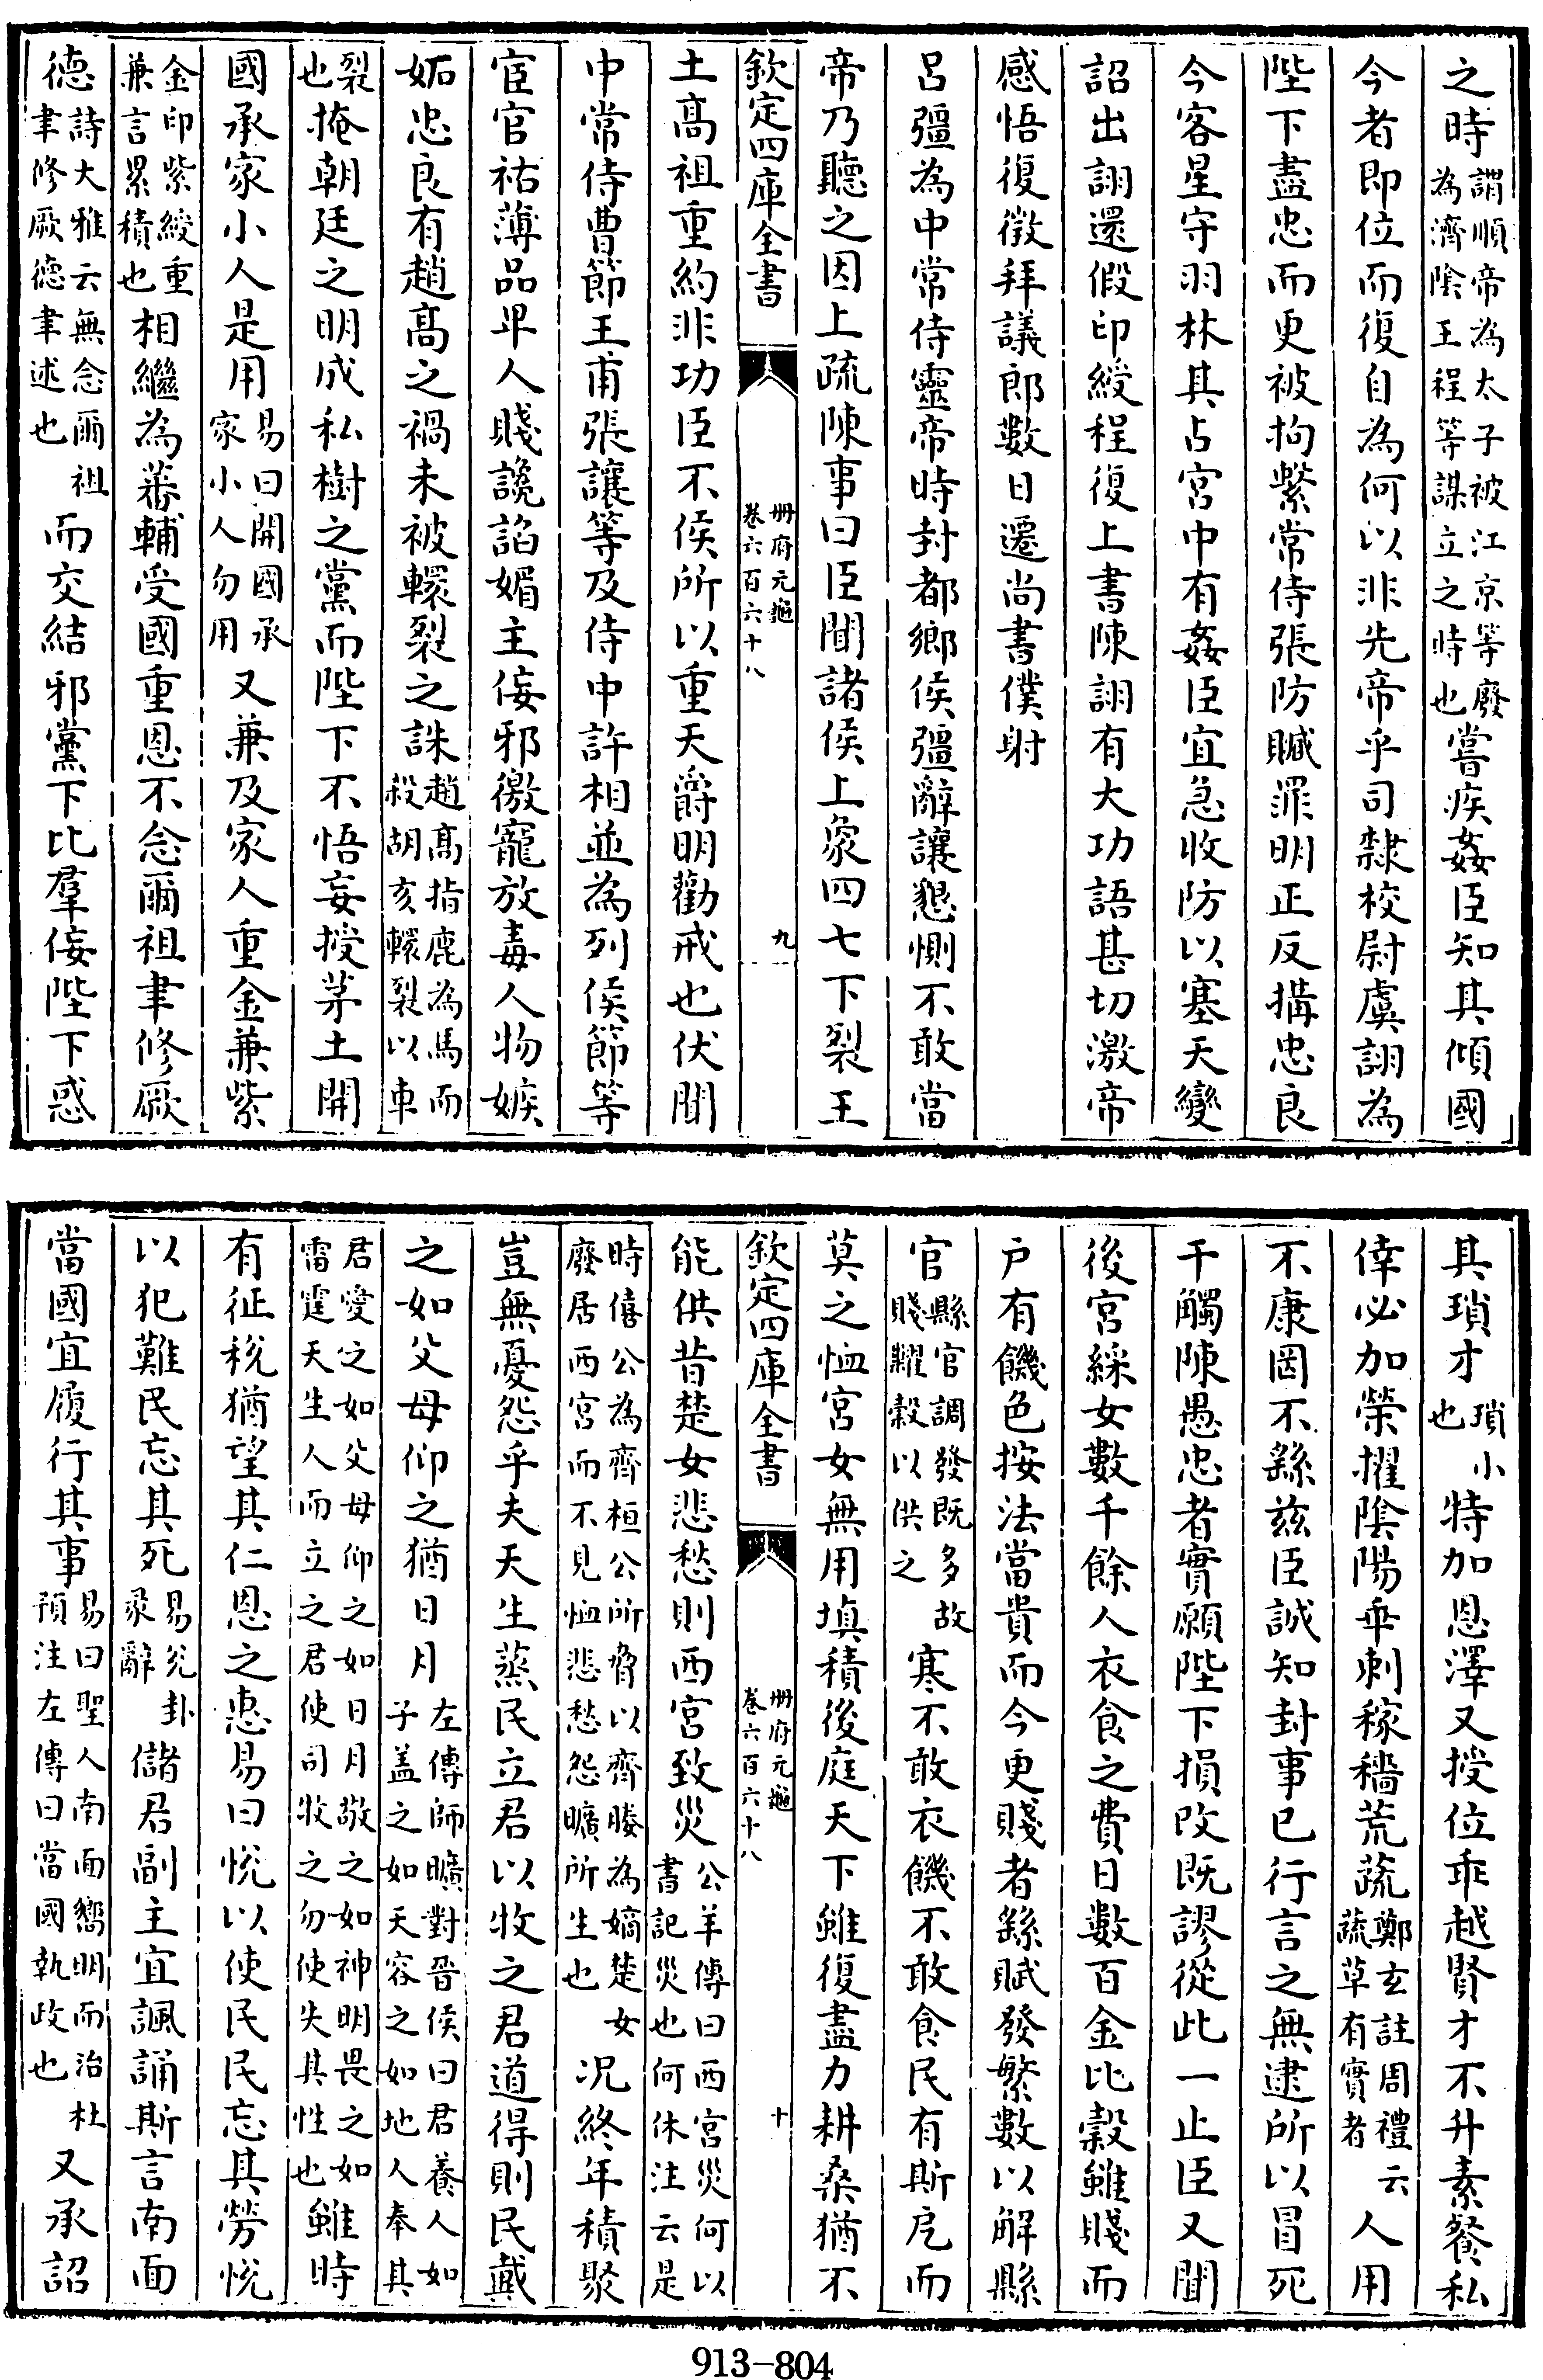 之時謂順帝為太子被江京等廢為濟陰王程等謀立之時也嘗疾姦臣知其傾國
今者即位而復自為何以非先帝乎司隸校尉虞詡為
陛下盡忠而更被拘繫常侍張防贓罪明正反搆忠良
今客星守羽林其占宮中有姦臣宜急收防以塞天變
詔出詡還假印綬程復上書陳詡有大功語甚切激帝
感悟復徵拜議郎數日遷尚書僕射
呂彊為中常侍靈帝時封都鄉侯彊辭讓懇惻不敢當
帝乃聽之因上疏陳事曰臣聞諸侯上象四七下裂王
欽定四庫全書 冊府元龜卷六百六十八 九
土高祖重約非功臣不侯所以重天爵明勸戒也伏聞
中常侍曹節王甫張讓等及侍中許相並為列侯節等
宦官祐薄品卑人賤讒諂媚主佞邪徼寵放毒人物嫉
妬忠良有趙高之禍未被轘裂之誅趙高指鹿為馬而殺胡亥轘裂以車
裂也掩朝廷之明成私樹之黨而陛下不悟妄授茅土開
國承家小人是用易曰開國承家小人勿用又兼及家人重金兼紫
金印紫綬重兼言累積也相繼為蕃輔受國重恩不念爾祖聿修厥
德詩大雅云無念爾祖聿修厥德聿述也而交結邪黨下比羣佞陛下惑
其瑣才瑣小也特加恩澤又授位乖越賢才不升素餐私
倖必加榮擢陰陽乖刺稼穡荒蔬鄭玄註周禮云蔬草有實者人用
不康罔不繇兹臣誠知封事已行言之無逮所以冒死
千觸陳愚忠者實願陛下損改既謬從此一止臣又聞
後宮綵女數千餘人衣食之費日數百金比穀雖賤而
户有饑色按法當貴而今更賤者繇賦發繁數以解縣
官縣官調發既多故賤糶穀以供之寒不敢衣饑不敢食民有斯戹而
莫之恤宮女無用填積後庭天下雖復盡力耕桑猶不
欽定四庫全書 冊府元龜卷六百六十八 十
能供昔楚女悲愁則西宮致災公羊傳曰西宮災何以書記災也何休注云是
時僖公為齊桓公所脅以齊媵為嫡楚女廢居西宮而不見恤悲愁怨曠所生也况終年積聚
豈無憂怨乎夫天生蒸民立君以牧之君道得則民戴
之如父母仰之猶日月左傳師曠對晉侯曰君養人如子盖之如天容之如地人奉其
君愛之如父母仰之如日月敬之如神明畏之如雷霆天生人而立之君使司牧之勿使失其性也雖時
有征税猶望其仁恩之惠易曰悦以使民民忘其勞悦
以犯難民忘其死易兌卦彖辭儲君副主宜諷誦斯言南面
當國宜履行其事易曰聖人南面嚮明而治杜預注左傳曰當國執政也又承詔
913-804